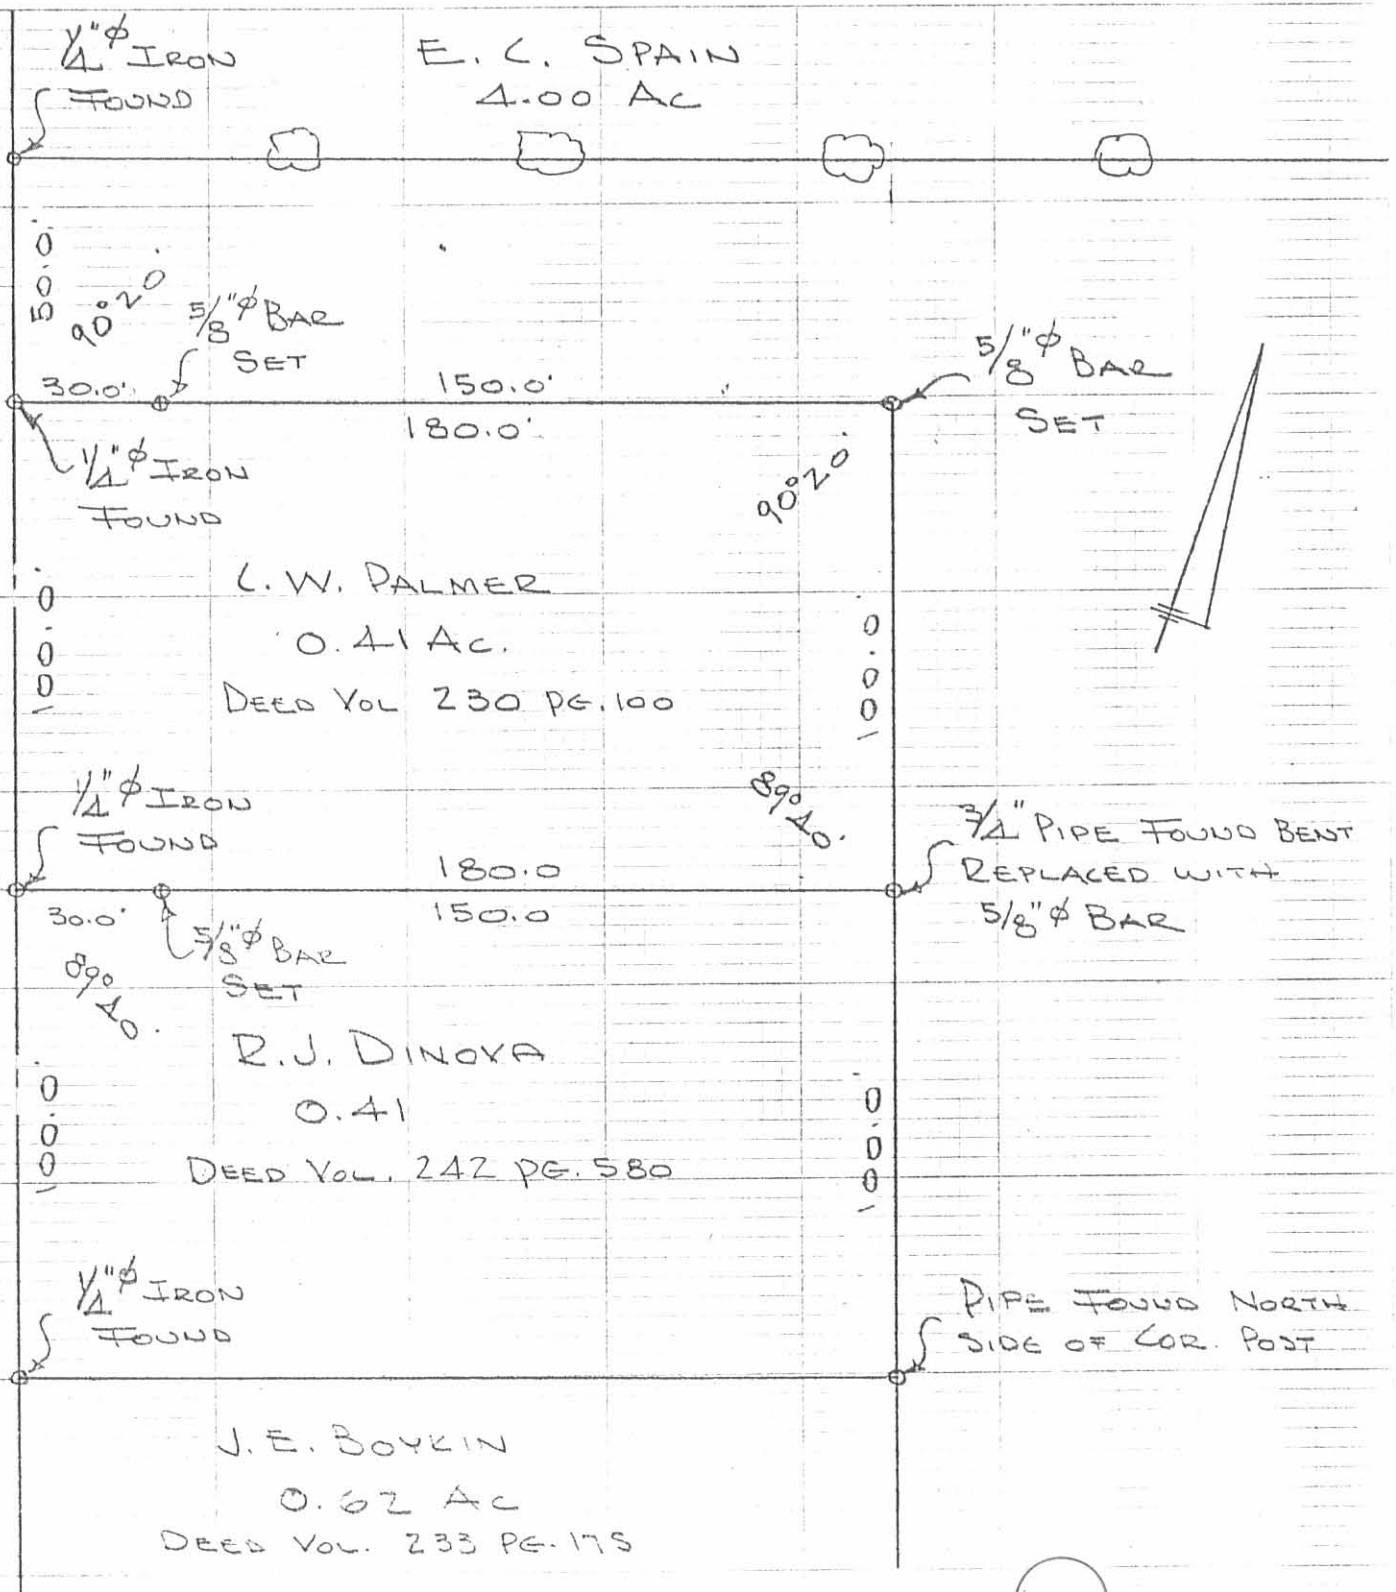 1/4"φ IRON
FOUND
E. C. SPAIN
4.00 AC
50.0'
90°20'
5/8"φ BAR
SET
30.0'
150.0'
180.0'
5/8"φ BAR
SET
1/4"φ IRON
FOUND
90°20'
C. W. PALMER
0.41 AC.
DEED VOL 230 PG. 100
100.0'
100.0'
1/4"φ IRON
FOUND
89°40'
3/4" PIPE FOUND BENT
REPLACED WITH
5/8"φ BAR
180.0
150.0
30.0'
5/8"φ BAR
SET
89°40'
R. J. DINOVA
0.41
DEED VOL. 242 PG. 580
100.0'
100.0'
1/4"φ IRON
FOUND
PIPE FOUND NORTH
SIDE OF COR. POST
J. E. BOYKIN
0.62 AC
DEED VOL. 233 PG. 175